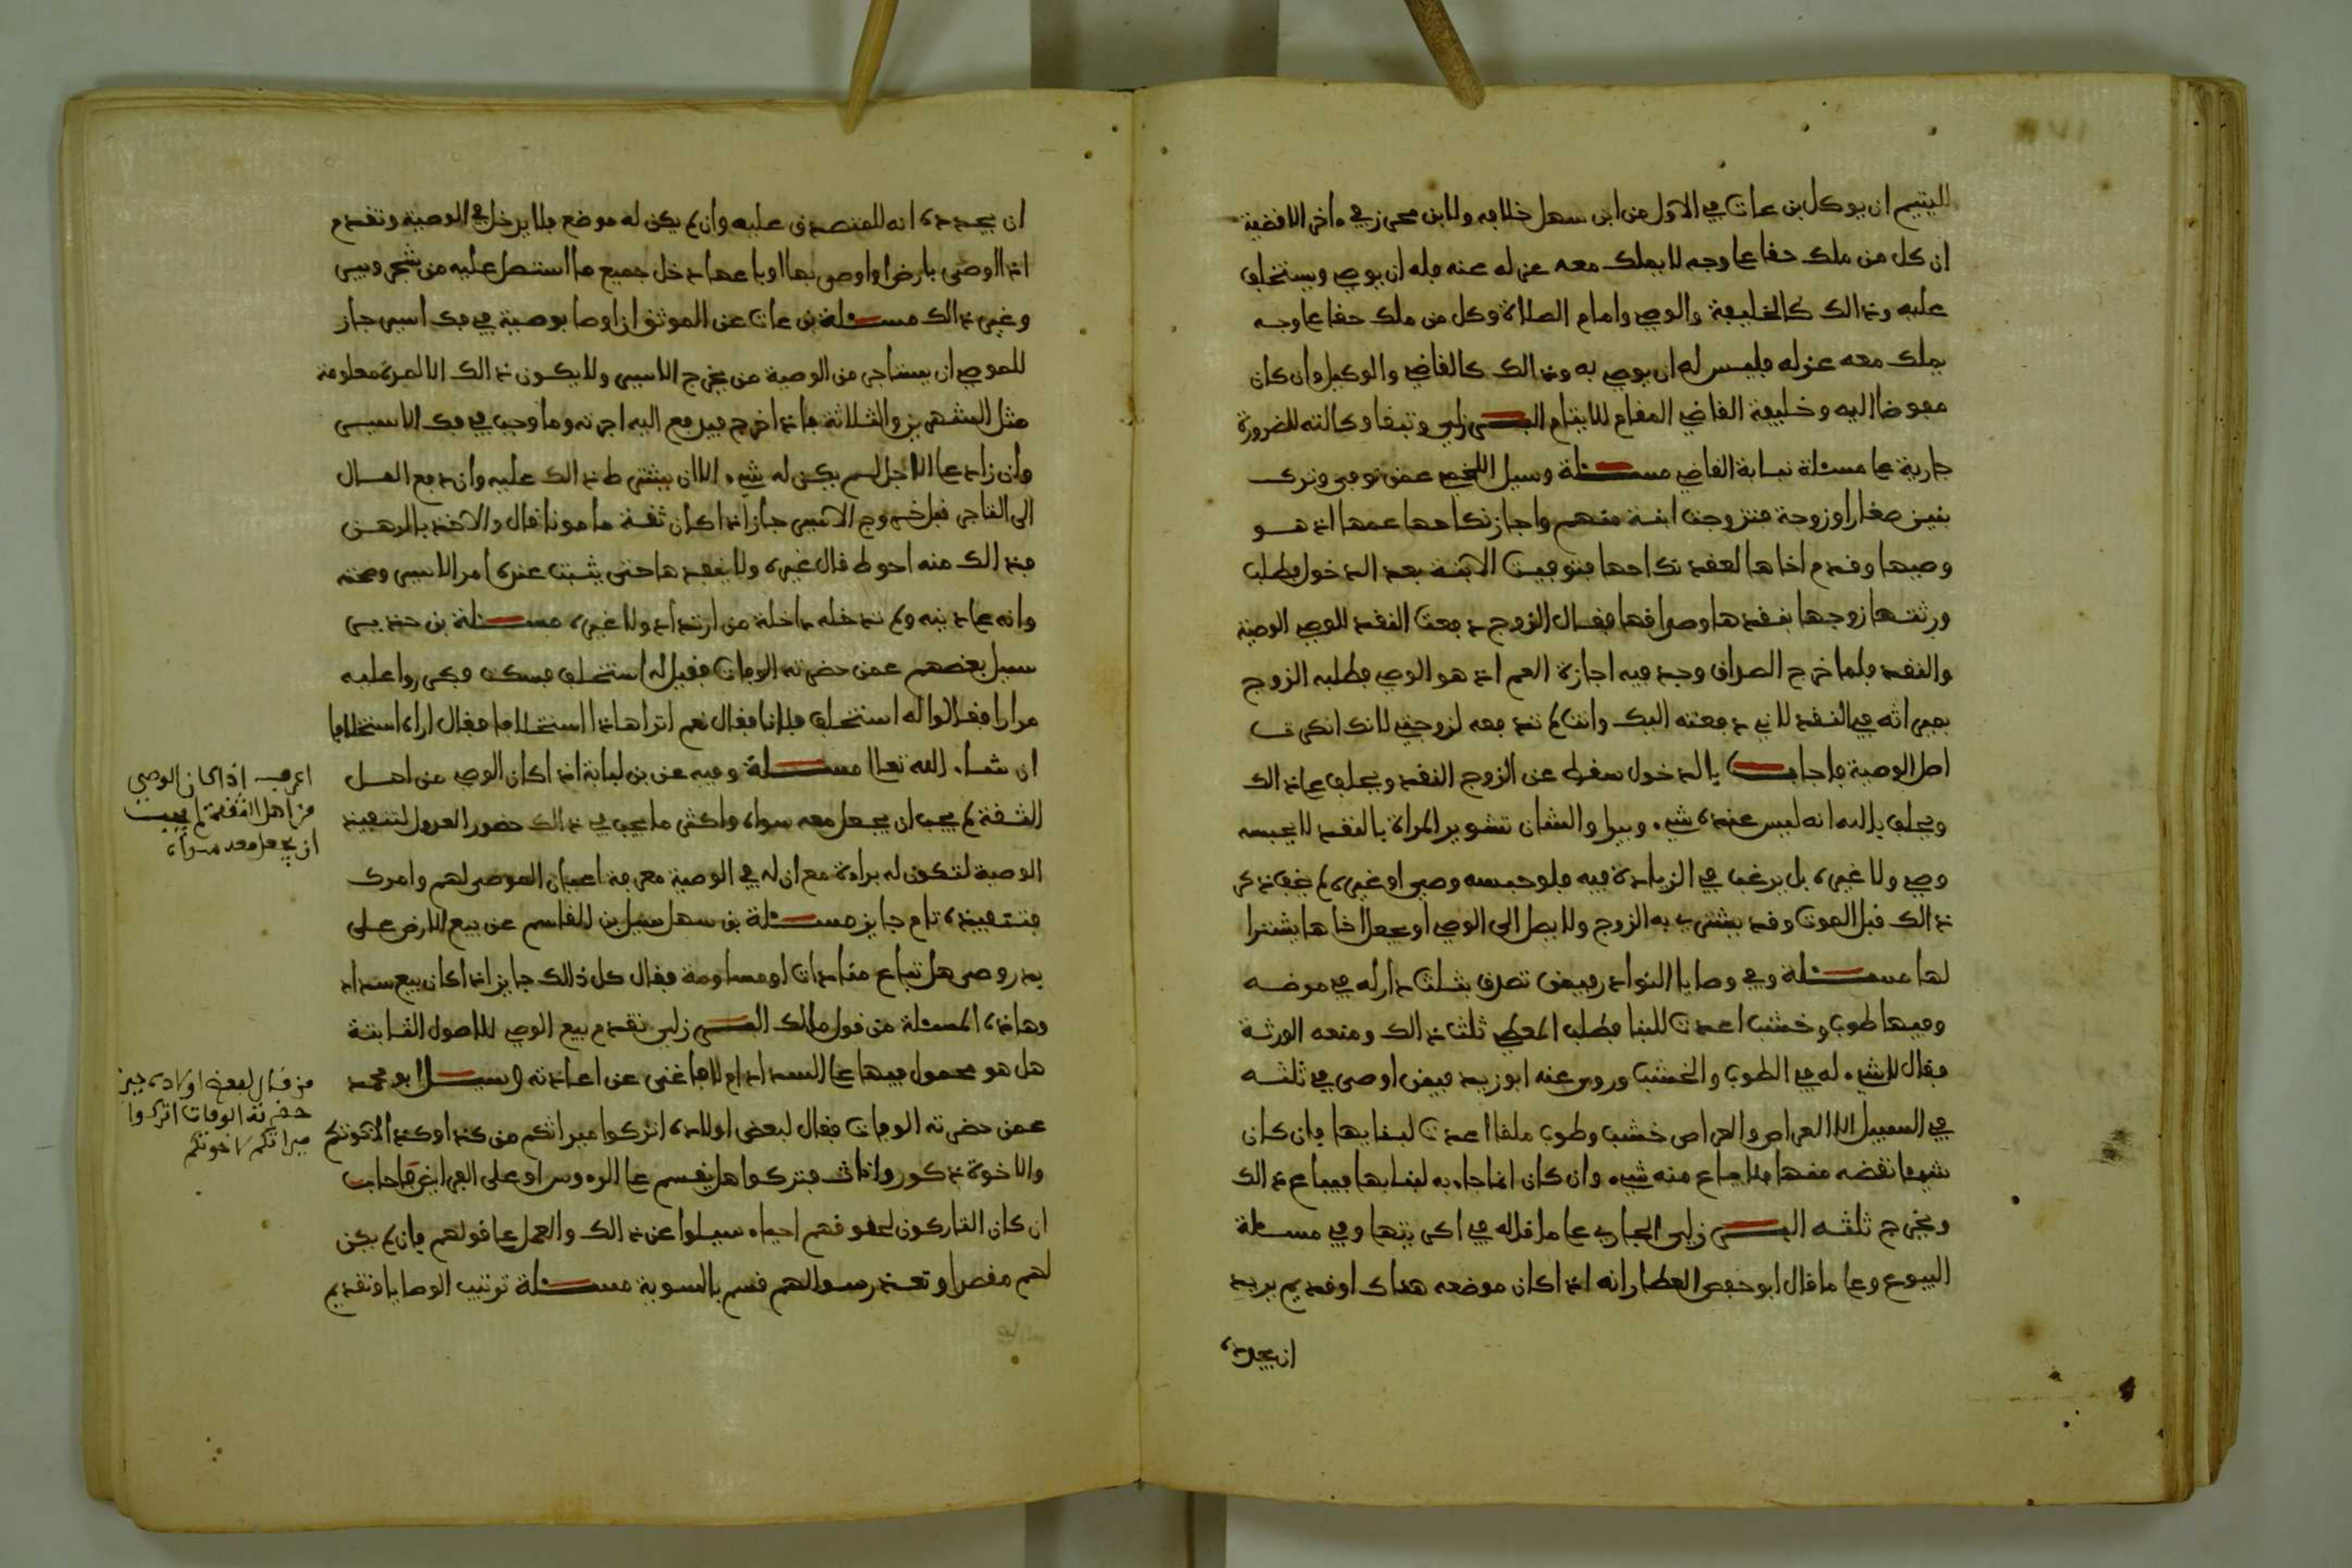 لليتيم ان يوكل بن عات في الاول من ابن سهل خلافه ولابن محرز في ءاخر الاقضية
ان كل من ملك حقا عا وجه لا يملك معه عزله عنه فله ان يوصي ويستخلف
عليه وذالك كالخليفة والوصي وامام الصلاة وكل من ملك حقا عا وجه
يملك معه عزله فليس له ان يوصي به وذالك كالقاضي والوكيل وان كان
مفوضا اليه وخليفة القاضي المقام للايتام البـرزلي وتبقا وكالته للضرورة
جارية عا مسئلة نيابة القاضي مسئلة وسيل اللخمي عمن توفي وترك
بنين صغارا وزوجة فتزوجت ابنة منهم واجاز نكاحها عمها اذ هو
وصيها وقدم اخاها لعقد نكاحها فتوفيت الابنة بعد الدخول فطلب
ورثتها زوجها بنقدها وصداقها فقال الزوج دفعت النقد للوصي الوصية
والنقد فلما خرج الصداق وجد فيه اجازة العم اذ هو الوصي فطلبه الزوج
بميراثه في النقد لاني دفعته اليك وانت لم تدفعه لزوجتي لانك انكرت
اصل الوصية فاجاب بالدخول سقط عن الزوج النقد ويحلف عا ذالك
ويحلف بالله انه ليس عنده شيء ويبرا والشان تشوير المراة بالنقد لا يحبسه
وصي ولا غيره بل يرغب في الزيادة فيه فلو حبسه وصي او غيره لم يخف ذكر
ذالك قبل الموت وقد يشتري به الزوج ولا يصل الى الوصي او يجعل اخاها يشترا
لها مسئلة وفي وصايا النوادر فيمن تصدق بثلث دار له في موضعه
وفيها طوب وخشب اعدت للبنا فطلب المعطي ثلث ذالك ومنعه الورثة
فقال لا شيء له في الطوب والخشب وروى عنه ابو زيد فيمن اوصى في ثلثه
في السبيل الا العراص والعراص خشب وطوب ملقا اعدت لبنايها فان كان
شيئا نقضه منها فلا يباع منه شيء وان كان انما جاء به لبنايها فيباع ذالك
ويخرج ثلثه البـرزلي الجاري عا ما قاله في اكريتها وفي مسئلة
البيوع وعا ما قال ابو حفص العطار انه اذا كان موضعه هناك او قديم يريد
ان يجدده
ان يجدده انه للمتصدق عليه وان لم يكن له موضع فلا يدخل في الوصية وتقدم
اذا اوصى بارض او اوصى بها او باعها دخل جميع ما اشتمل عليه من شجر وبير
وغير ذالك مسئلة بن عات عن الموثق اذا وصا بوصية في فك اسير جاز
للموصي ان يستاجر من الوصية من يخرج الاسير ولا يكون ذالك الا لمدة معلومة
مثل الشهرين والثلاثة فاذا خرج فيدفع اليه اجرته وما وجب في فك الاسير
وان زاد عا الاجل لم يكن له شيء الا ان يشترط ذالك عليه وان دفع المال
الى التاجر قبل خروج الاسير جاز اذا كان ثقة مامونا قال والاخذ بالرهن
فذالك منه احوط قال غيره ولا ينفدها حتى يثبت عنده امر الاسير وصحته
وانه عا دينه ولم تدخله داخلة من ارتداد ولا غيره مسئلة بن حذير
سيل بعضهم عمن حضرته الوفات فقيل له استخلف فسكت فكرروا عليه
مرارا فقالوا له استخلف فلانا فقال نعم اتراها ذا استخلافا فقال اراه استخلافا
ان شاء الله تعالا مسئلة وفيه عن بن لبابة اذا كان الوصي من اهل
الثقة لم يجب ان يجعل معه سواه واكثر ما يجب في ذالك حضور العدول لتنفيذ
الوصية لتكون له براءة مع ان له في الوصية معرفة اعيان الموصى لهم وامرك
بتنفيذه تام جايز مسئلة بن سهل سيل بن القاسم عن بيع الارض على
يد وصي هل تباع منادات او مساومة فقال كل ذالك جايز اذا كان بيع سداد
وهاذه المسئلة من قول مالك البـرزلي تقدم بيع الوصي للاصول الثابتة
هل هو محمول فيها عا السداد ام لا فاغنى عن اعادته وسيل ابو محمد
عمن حضرته الوفات فقال لبعض اولاده اتركوا ميراثكم من كذا وكذا لاخوتكم
والاخوة ذكور واناث فتركوا هل يقسم عا الرءوس او على الفرايض فاجاب
ان كان التاركون لحقوقهم احياء سيلوا عن ذالك والعمل عا قولهم فان لم يكن
لهم مقصد او تعذر سوالهم قسم بالسوية مسئلة ترتيب الوصايا وتقديم
اعرف إذا كان الوصي
من اهل الثقة لم يجب
ان يجعل معه سواه
من قال لبعض اولاده حين
حضرته الوفات اتركوا
ميراثكم لاخوتكم